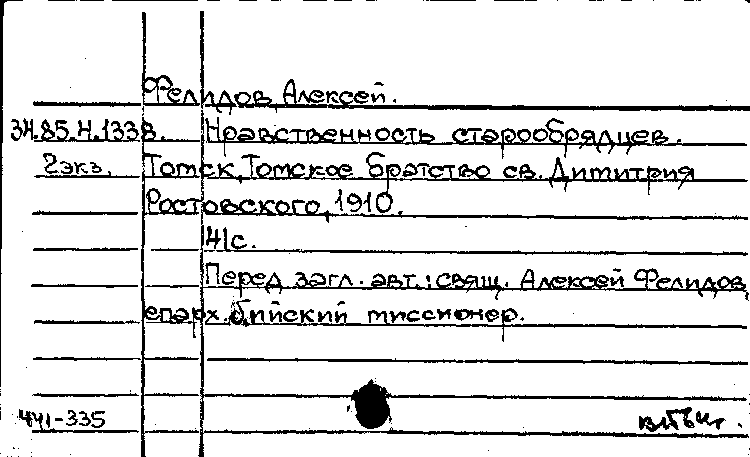 Фелидов, Алексей.
34.85.4.1338. Нравственность старообрядцев.
2экз. Томск, Томское братство св. Димитрия
Ростовского, 1910.
41с.
Перед загл. авт.: свящ. Алексей Фелидов,
епарх. бийский миссионер.
441-335